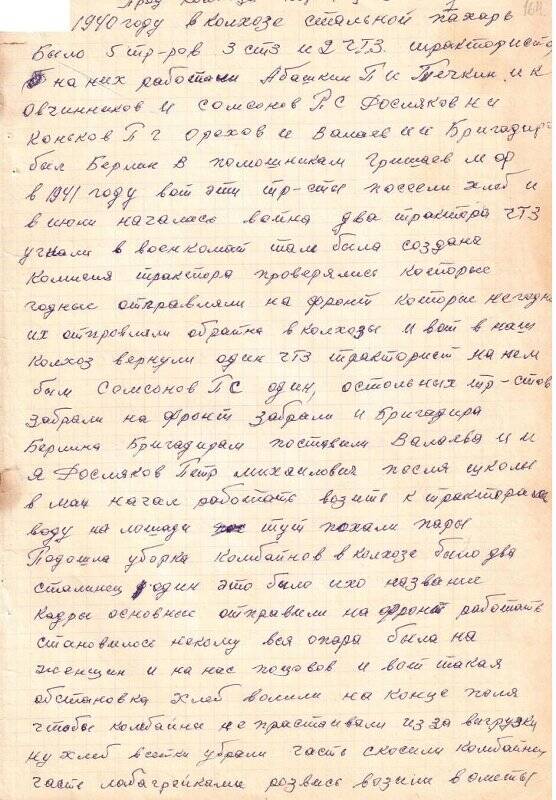 7 164
1940 году в колхозе стальной пахарь
Было 5 тр-ров 3 стз и 2 ЧТЗ. трактористо
на них работали Абашкин П и Течкин и к
Овчинников И Сомсонов ПС Фосляков Н И
Коньков П Г Орехов И Валаев И И Бригадира
был Берлин В помошникам Гришаев М ф
в 1941 году вот эти тр-сты посеели хлеб и
в июни началась война два трактора ЧТЗ
угнали в военкомат там была создана
Комисия трактора проверялись которые
годные отправляли на фронт которые негодны
их отправляли обратна в колхозы и вот в наш
колхоз вернули один ЧТЗ тракторист на нем
был Сомсонов ПС один, остальных тр-стов
забрали на фронт забрали и Бригадира
Берлина Бригадирам поставили Валаева И И
Я Фосляков Петр михаилович посля школы
в маи начал работать возить к трактарам
воду на лошади тут пахали пары
Подошла уборка Комбайнов в колхозе было два
сталинец один это было ихо название
кадры основные отправили на фронт работать
становилось некому вся опара была на
женщин и на нас поцовов и вот такая
обстановка хлеб волили на конце поля
чтобы комбайны не прастаивали из за выгрузки
ну хлеб всётки убрали часть скосили комбайнам
часть лобагрейками розвись возили в ометы